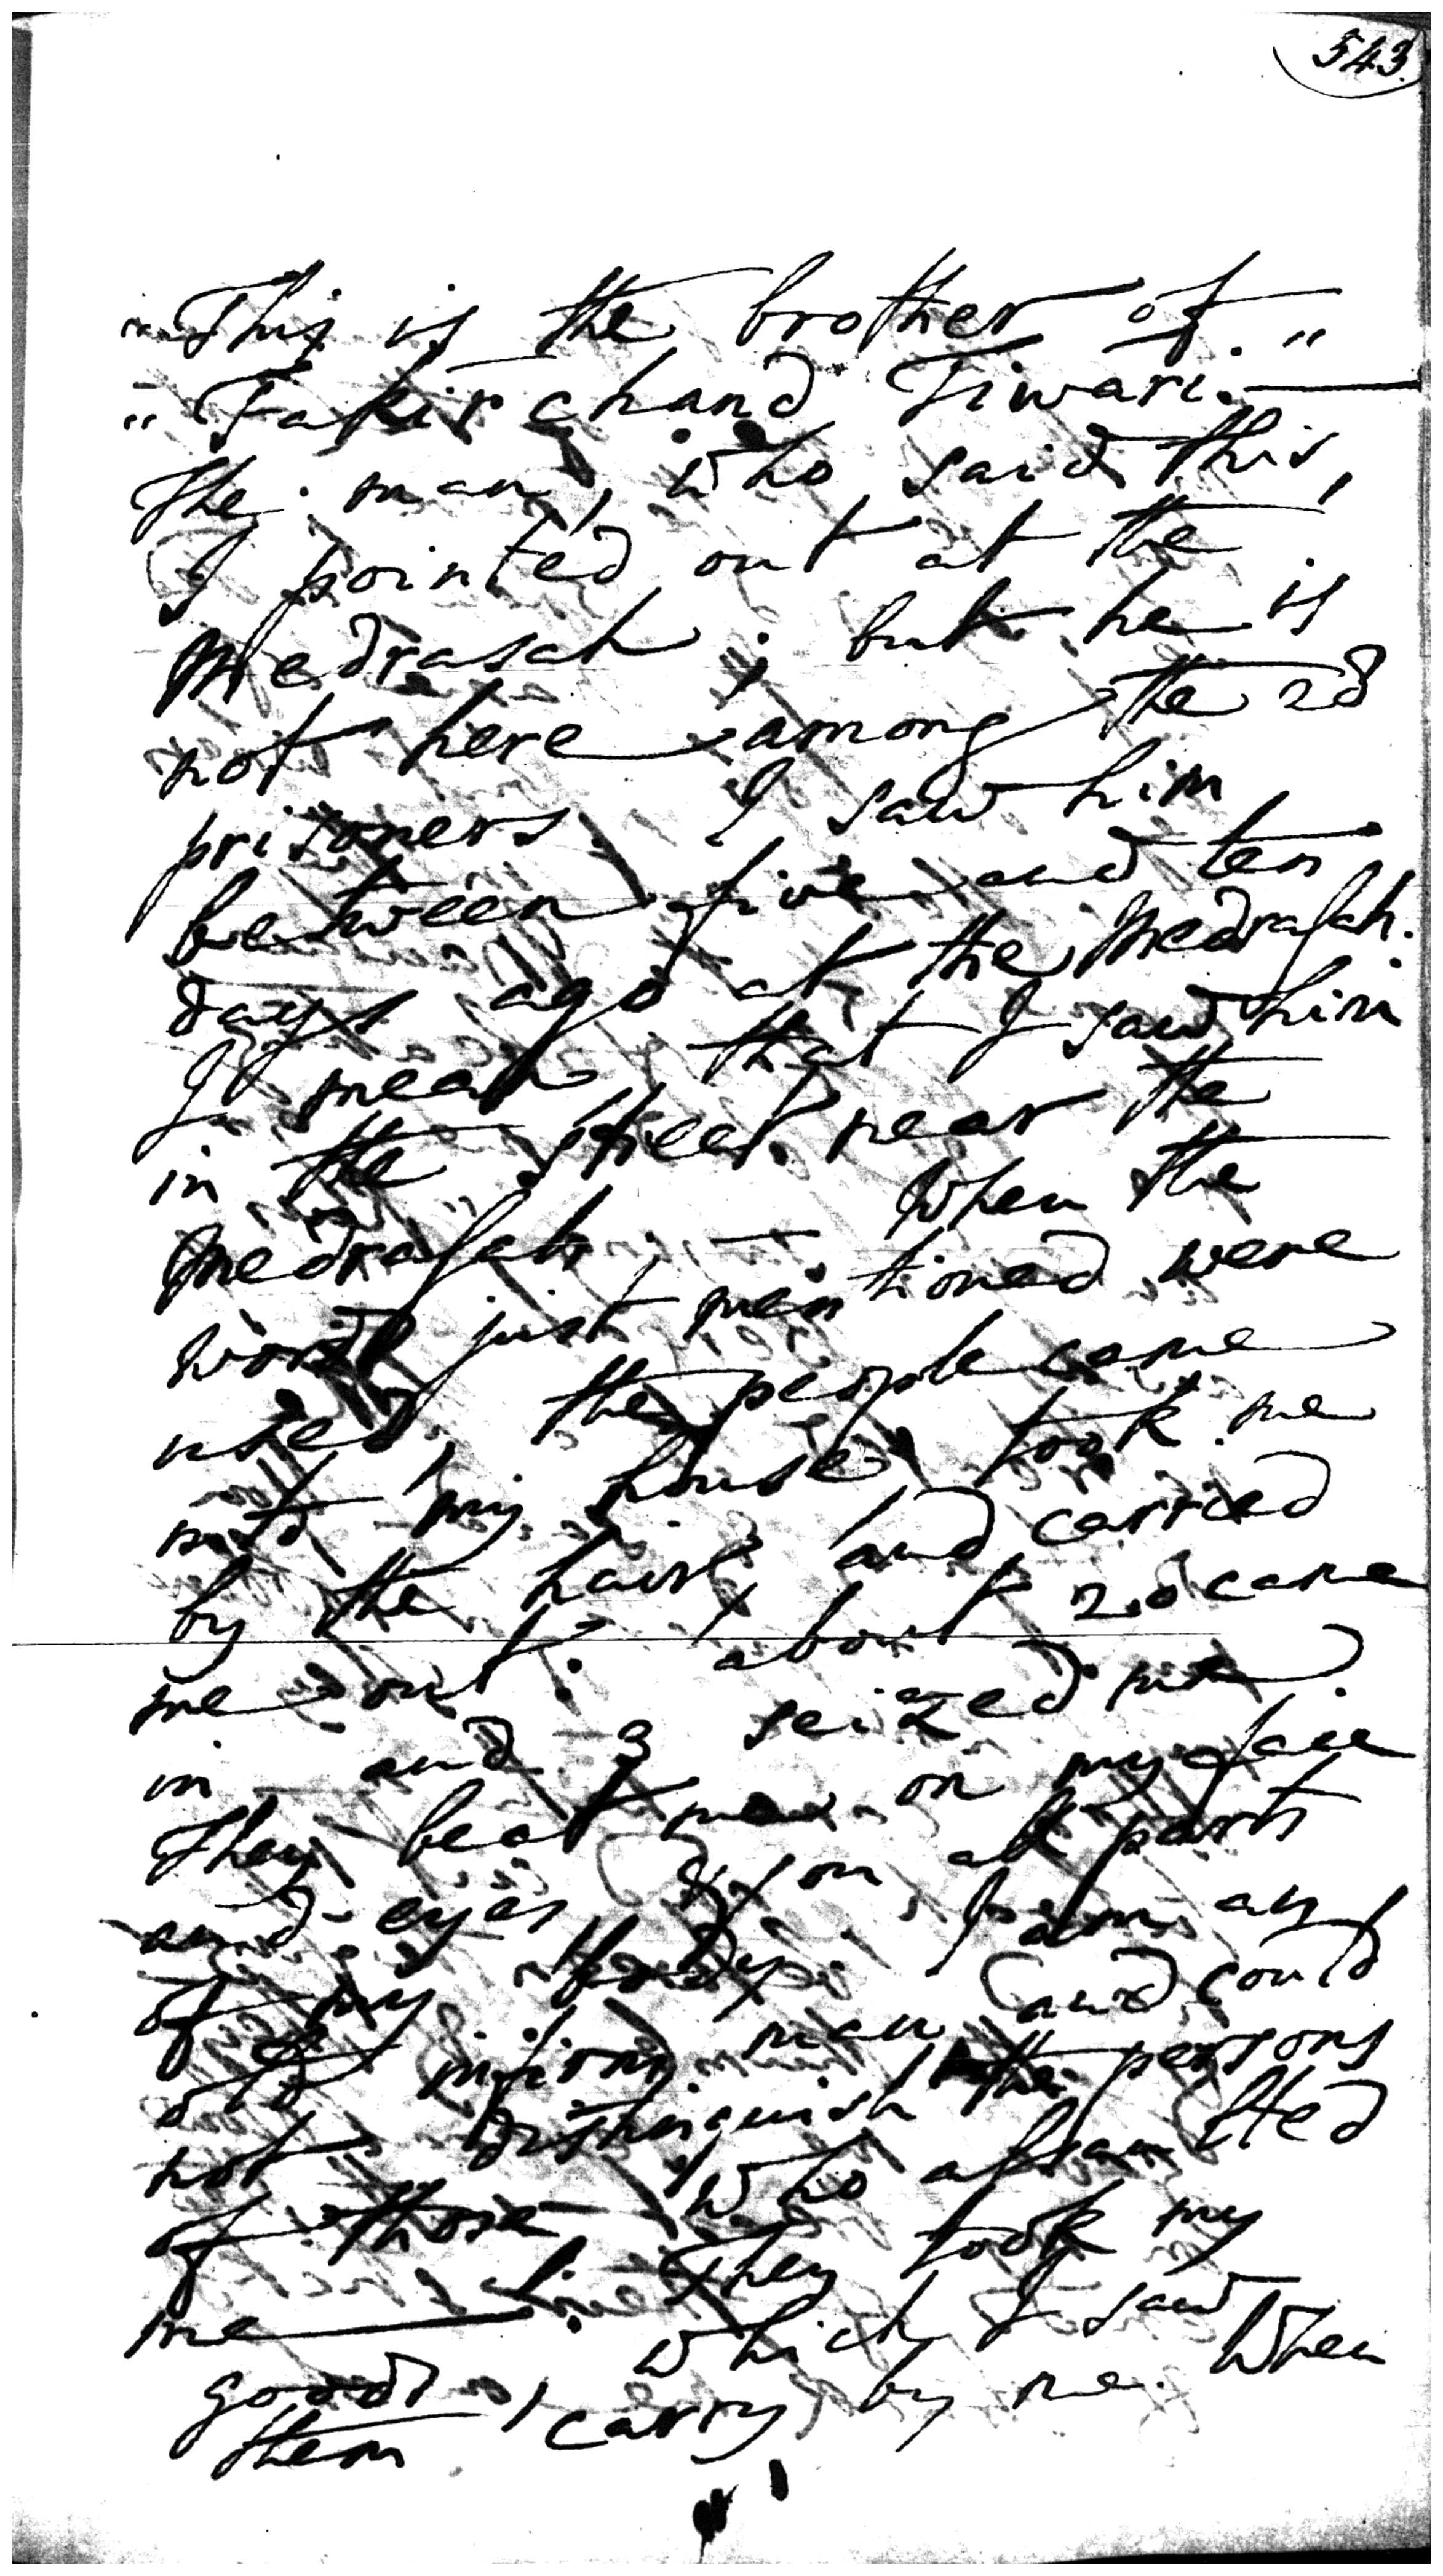 543.
"This is the brother of "
" Fakirchand Tiwari.—
The man, who said this,
I pointed out at the
Medrasah; but he is
not here among the 28
prisoners. I saw him
between five and ten
days ago at the Medrasah.
I mean that I saw him
in the street near the
Medrasah. — When the
words just mentioned were
used, the people came
into my house, took me
by the hair, and carried
me out. About 20 came
in and 3 seized me.
They beat me on my face
and eyes, & on all parts
of my body. I am an
old infirm man and could
not distinguish the persons
of those who assaulted
me —. They took my
goods, which I saw
them carry by me. When